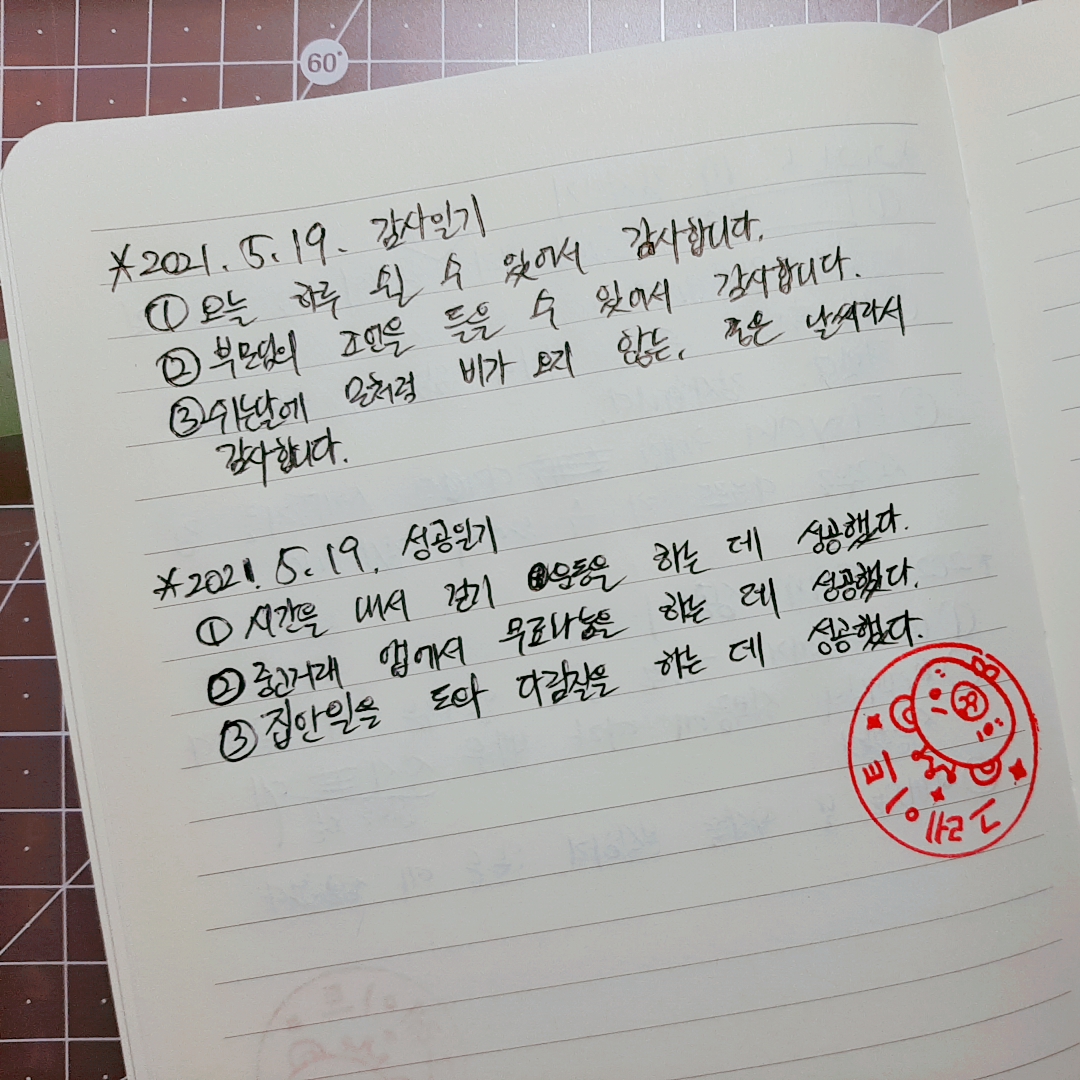 60°
*2021. 5. 19. 감사일기
① 오늘 하루 쉴 수 있어서 감사합니다.
② 부모님의 조언을 들을 수 있어서 감사합니다.
③ 쉬는날에 모처럼 비가 오지 않는, 좋은 날씨라서
감사합니다.
*2021. 5. 19. 성공일기
① 시간을 내서 걷기 운동을 하는 데 성공했다.
② 중고거래 앱에서 무료나눔을 하는 데 성공했다.
③ 집안일을 도와 다림질을 하는 데 성공했다.